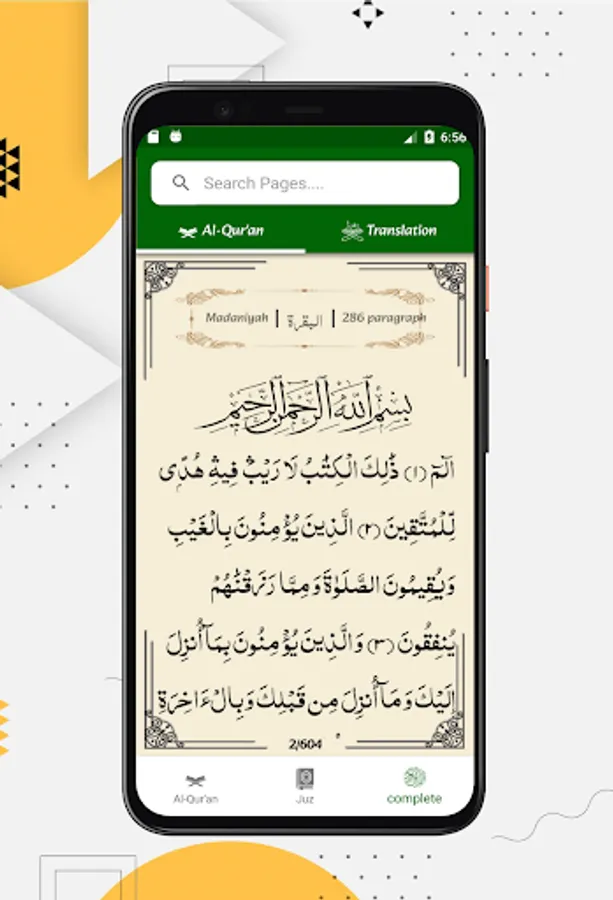 6:56
Search Pages....
Al-Qur'an Translation
Madaniyah | البقرة | 286 paragraph
بِسْمِ اللَّهِ الرَّحْمَٰنِ الرَّحِيمِ
الٓمّٓ (١) ذٰلِكَ الْكِتٰبُ لَا رَيْبَ فِيهِ هُدًى
لِّلْمُتَّقِينَ (٢) الَّذِينَ يُؤْمِنُونَ بِالْغَيْبِ
وَيُقِيمُونَ الصَّلَوٰةَ وَمِمَّا رَزَقْنٰهُمْ
يُنفِقُونَ (٣) وَالَّذِينَ يُؤْمِنُونَ بِمَآ أُنزِلَ
إِلَيْكَ وَمَآ أُنزِلَ مِن قَبْلِكَ وَبِالْءَاخِرَةِ
2/604
Al-Qur'an Juz complete